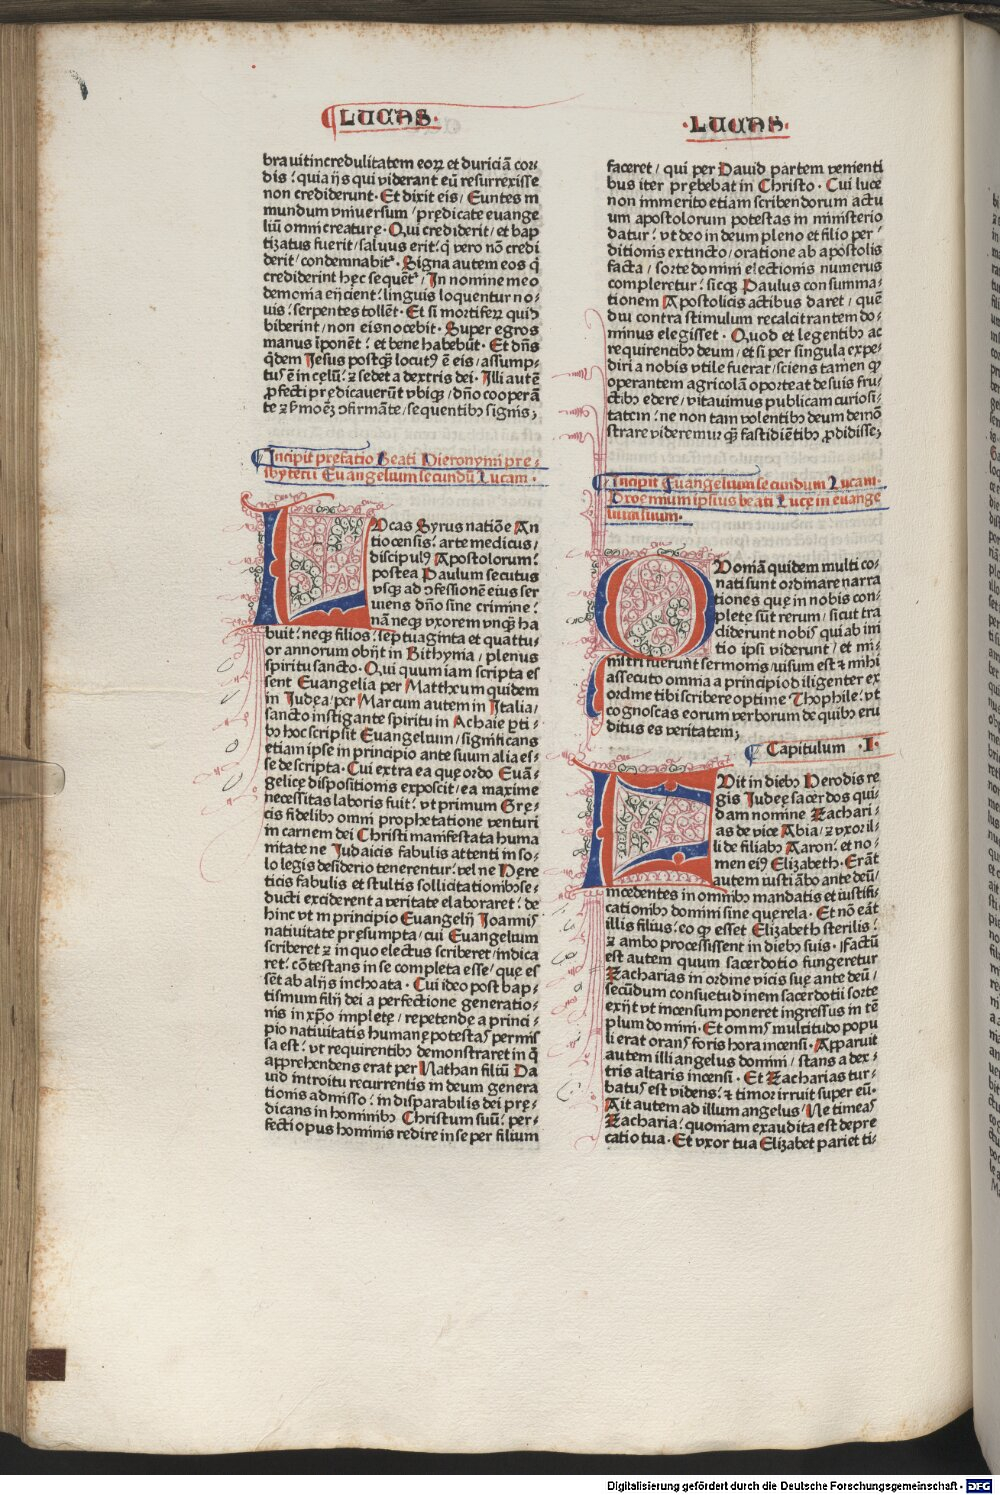 LUCAS·
·LUCAS·
brauitincredulitatem eoꝝ et duriciā cor⸗
dis : quia ijs qui viderant eū resurrexisse
non crediderunt · Et dixit eis / Euntes in
mundum vniuersum / predicate euange
liū omni creature · Qui crediderit / et bap
tizatus fuerit / saluus erit : q̇ vero nō credi
derit / condemnabit᷑ · Signa autem eos q̇
crediderint hęc sequēt᷑ / In nomine meo
demonia eijcient : linguis loquentur no⸗
uis : serpentes tollēt · Et si mortiferꝝ quid
biberint / non eis nocebit · Super egros
manus īponēt : et bene habebūt · Et dn̄s
q̇dem Jesus postq̄ꝫ locutꝰ ē eis / assump⸗
tus ē in cęlū : ⁊ sedet a dextris dei · Illi autē
ꝓfecti predicauerūt vbiqꝫ / dn̄o cooperā
te ⁊ ẜmoēꝫ ↄfirmāte / sequentibꝰ signis ;
Incipit prefatio Beati Hieronymi pre⸗
sbyteri Euangelium secundū Lucam ·
LVcas Syrus natiōe An
tiocensis : arte medicus /
discipulꝰ Apostolorum :
postea Paulum secutus
vsqꝫ ad ↄfessionē eius ser
uiens dn̄o sine crimine :
nā neqꝫ vxorem vnqꝫ ha
buit : neqꝫ filios : septuaginta et quattu⸗
or annorum obijt in Bithynia / plenus
spiritu sancto · Qui quum iam scripta es
sent Euangelia per Matthęum quidem
in Judęa / per Marcum autem in Italia /
sancto instigante spiritu in Achaie ꝑti⸗
bꝰ hoc scripsit Euangelium / significans
etiam ipse in principio ante suum alia es⸗
se descripta · Cui extra ea quę ordo Euā⸗
gelicę dispositionis exposcit / ea maxime
necessitas laboris fuit : vt primum Grę⸗
cis fidelibꝰ omni prophetatione venturi
in carnem dei Christi manifestata huma
nitate ne Judaicis fabulis attenti in so⸗
lo legis desiderio tenerentur : vel ne Here
ticis fabulis et stultis sollicitationibꝰ se⸗
ducti exciderent a veritate elaboraret : de
hinc vt in principio Euangelij Joannis
natiuitate pręsumpta / cui Euangelium
scriberet ⁊ in quo electus scriberet / indica
ret : cōtestans in se completa esse / quę es
sēt ab alijs inchoata · Cui ideo post bap⸗
tismum filij dei a perfectione generatio⸗
nis in xp̄o impletę / repetendę a princi⸗
pio natiuitatis humanę potestas permis
sa est : vt requirentibꝰ demonstraret in q̇
apprehendens erat per Nathan filiū Da
uid introitu recurrentis in deum genera
tionis admisso : indisparabilis dei prę⸗
dicans in hominibꝰ Christum suū : per⸗
fecti opus hominis redire in se per filium
faceret / qui per Dauid partem venienti
bus iter prębebat in Christo · Cui lucę
non immerito etiam scribendorum actu
um apostolorum potestas in ministerio
datur : vt deo in deum pleno et filio per⸗
ditionis extincto / oratione ab apostolis
facta / sorte domini electionis numerus
compleretur : sicqꝫ Paulus consumma⸗
tionem Apostolicis actibus daret / quē
diu contra stimulum recalcitrantem do⸗
minus elegisset · Quod et legentibꝰ ac
requirentibꝰ deum / et si per singula expe⸗
diri a nobis vtile fuerat / sciens tamen ꝙ
operantem agricolā oporteat de suis fru⸗
ctibꝰ edere / vitauimus publicam curiosi⸗
tatem : ne non tam volentibꝰ deum demō
strare videremur q̄ꝫ fastidiētibꝰ ꝓdidisse ;
Incipit Euangelium secundum Lucam·
Proemium ipsius beati Lucę in euange
lium suum·
QVoniā quidem multi co⸗
nati sunt ordinare narra
tiones quę in nobis con⸗
pletę sūt rerum / sicut tra
diderunt nobis qui ab ini
tio ipsi viderunt / et mi⸗
nistri fuerunt sermonis / uisum est ⁊ mihi
assecuto omnia a principio diligenter ex
ordine tibi scribere optime Thophile : vt
cognoscas eorum verborum de quibꝰ eru
ditus es veritatem ;
Capitulum ·I·
FVit in diebꝰ Herodis re
gis Judeę sacerdos qui⸗
dam nomine Zachari⸗
as de vice Abia / ⁊ vxor il⸗
li de filiabꝰ Aaron : et no⸗
men eiꝰ Elizabeth · Erāt
autem iusti ābo ante deū /
incedentes in omnibꝰ mandatis et iustifi⸗
cationibꝰ domini sine querela · Et nō eāt
illis filius : eo ꝙ esset Elizabeth sterilis :
⁊ ambo processissent in diebꝰ suis · Factū
est autem quum sacerdotio fungeretur
Zacharias in ordine vicis suę ante deū /
secūdum consuetudinem sacerdotii sorte
exijt vt incensum poneret ingressus in tē
plum domini · Et omnis multitudo popu
li erat orans foris hora incensi · Apparuit
autem illi angelus domini / stans a dex⸗
tris altaris incensi · Et Zacharias tur⸗
batus est videns : ⁊ timor irruit super eū·
Ait autem ad illum angelus / Ne timeas
Zacharia : quoniam exaudita est depre
catio tua · Et vxor tua Elizabet pariet ti⸗
Digitalisierung gefördert durch die Deutsche Forschungsgemeinschaft - DFG